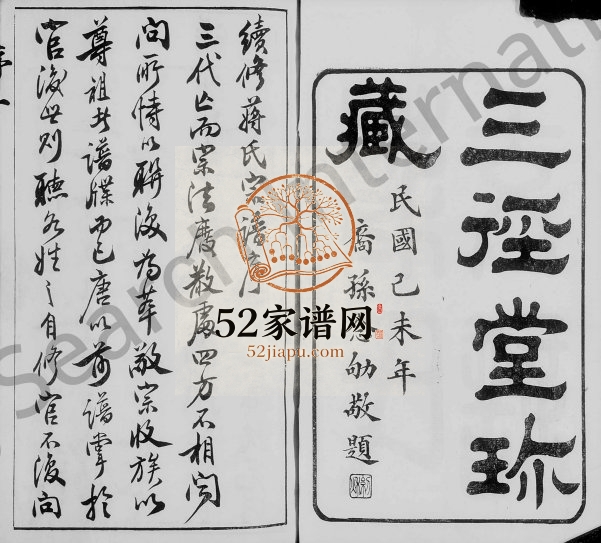 三徑堂珎
藏
民國己未年
裔孫
劬敬題
續修蔣氏宗譜序
三代亡而宗法廢散處四方不相聞
問所恃以聯渙為萃敬宗收族以
尊祖者譜牒而已唐以前譜掌於
官後世則聽各姓之自修官不復問
序 一
52家谱网
52jiapu.com
Search Internati